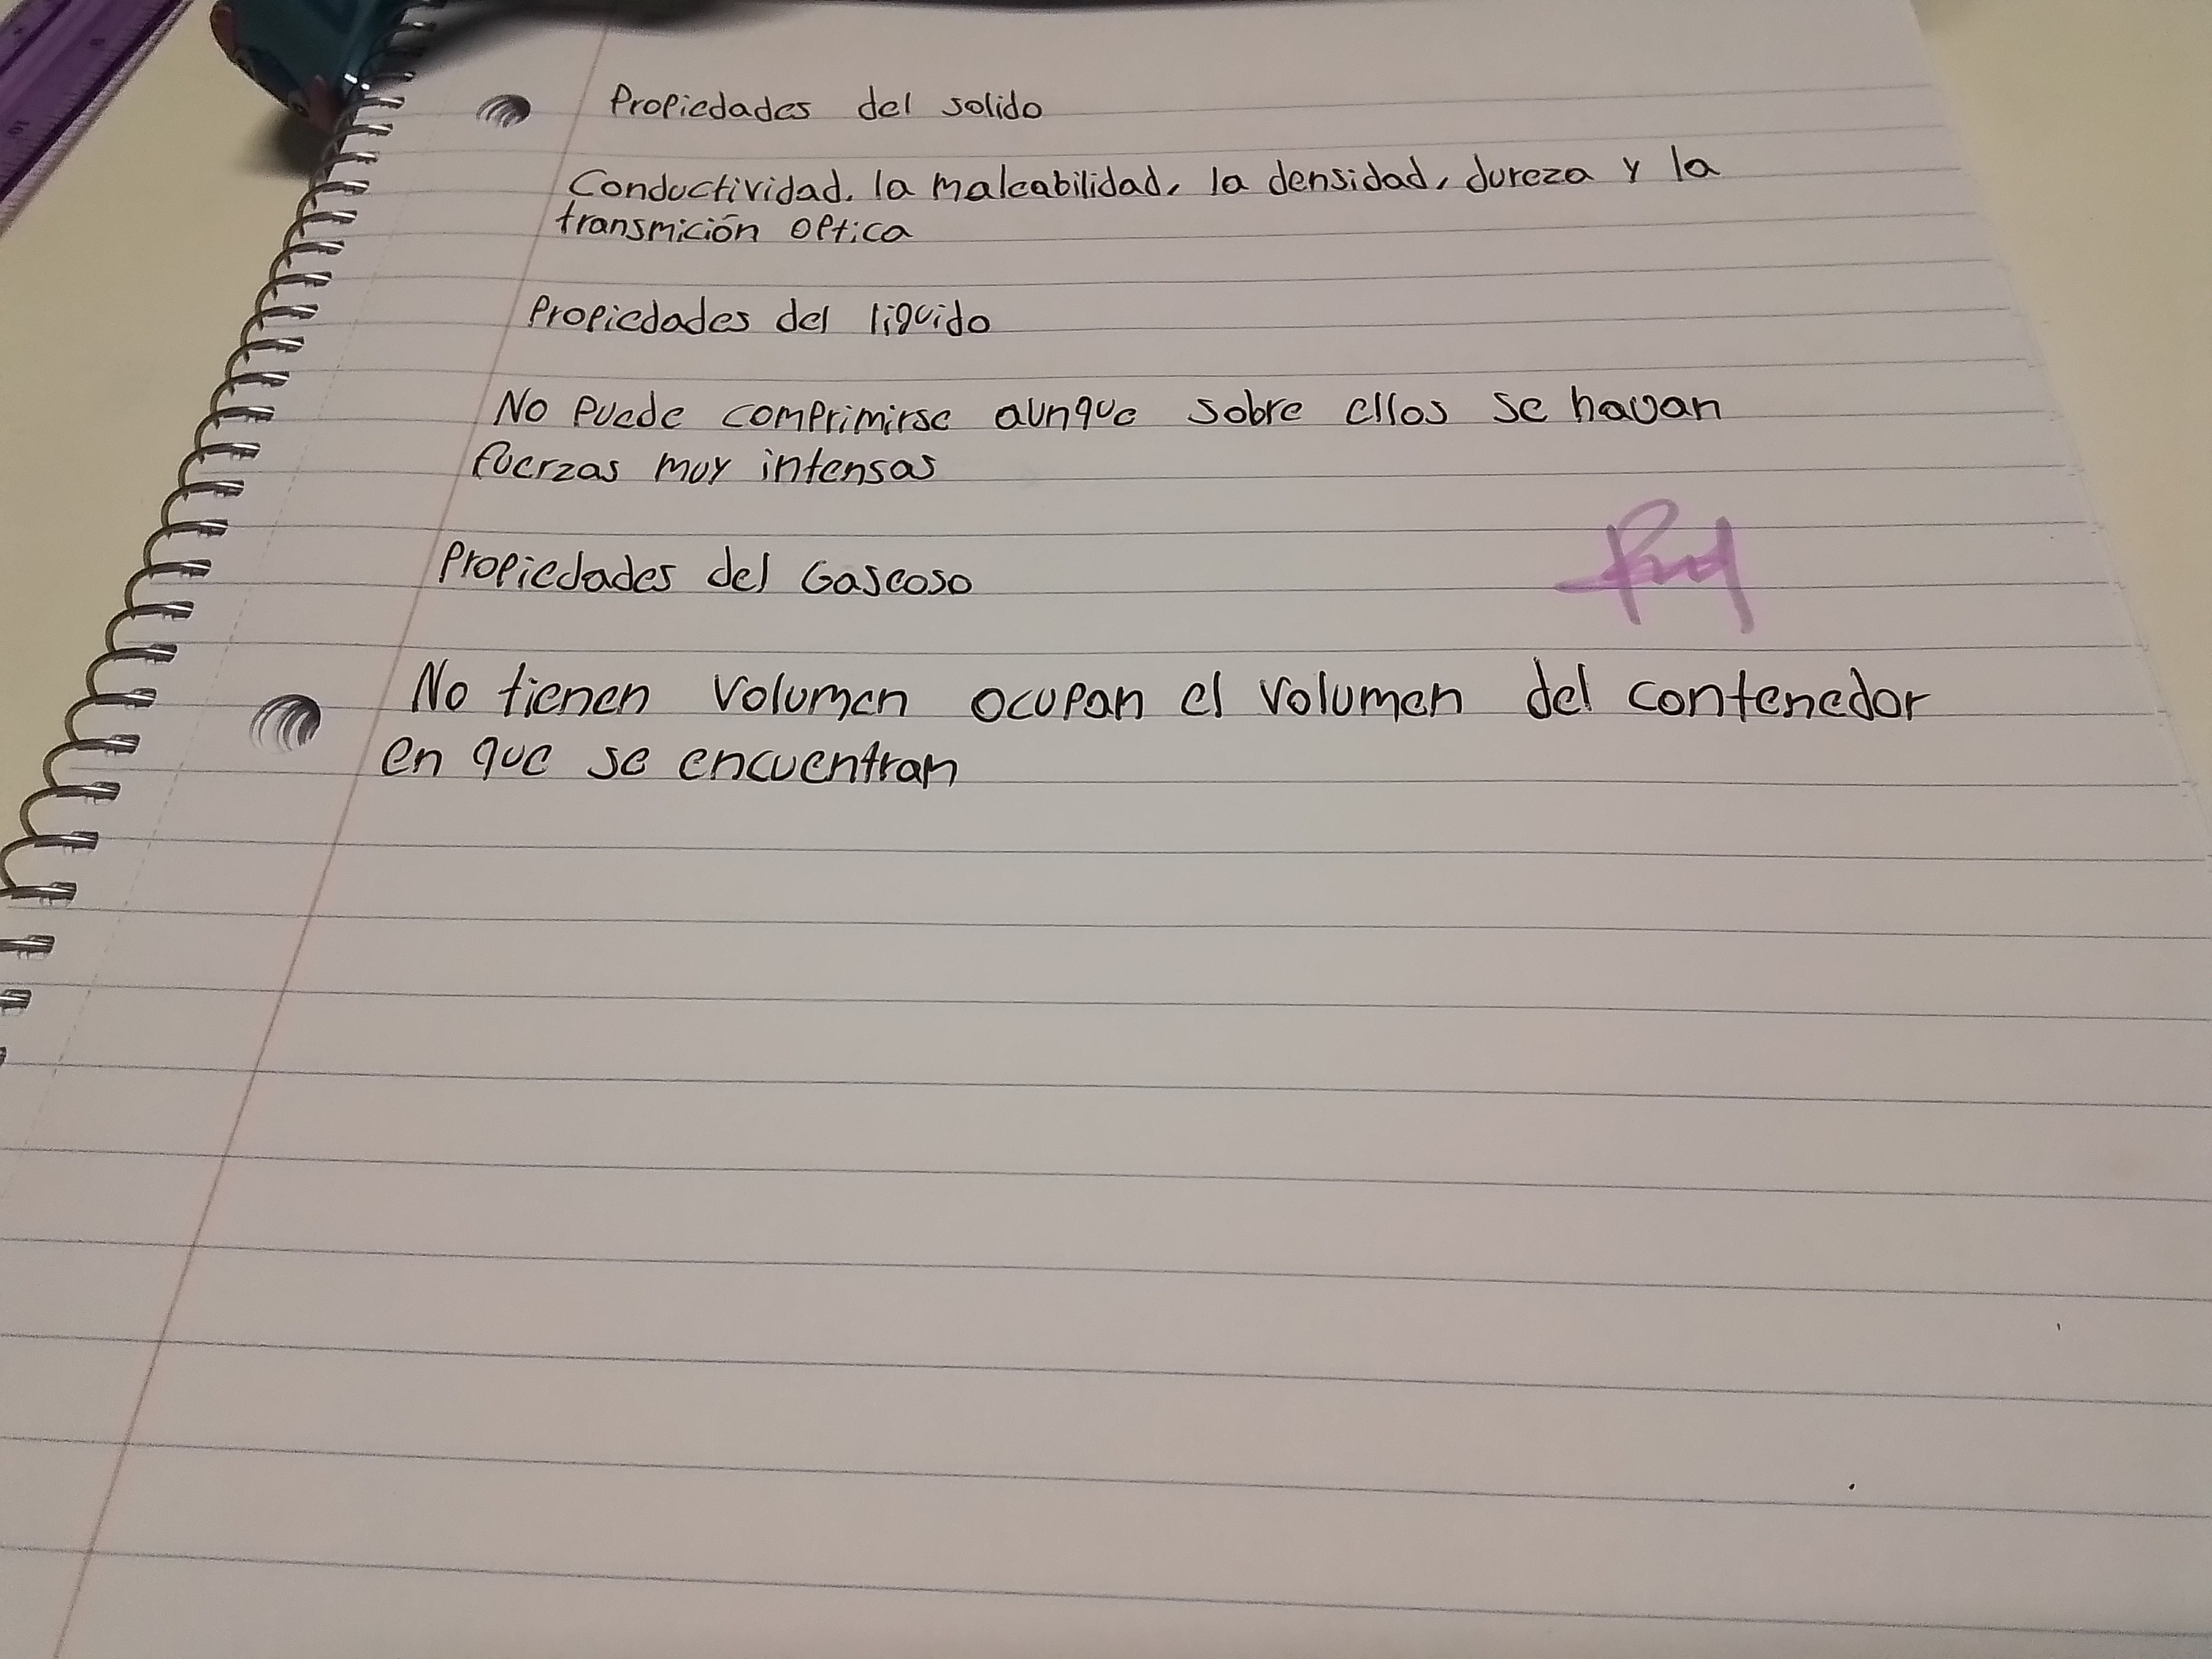 Propiedades del solido
Conductividad, la maleabilidad, la densidad, dureza y la
transmición optica
Propiedades del liquido
No puede comprimirse aunque sobre ellos se hauan
fuerzas muy intensas
Propiedades del Gaseoso
No tienen volumen ocupan el volumen del contenedor
en que se encuentran